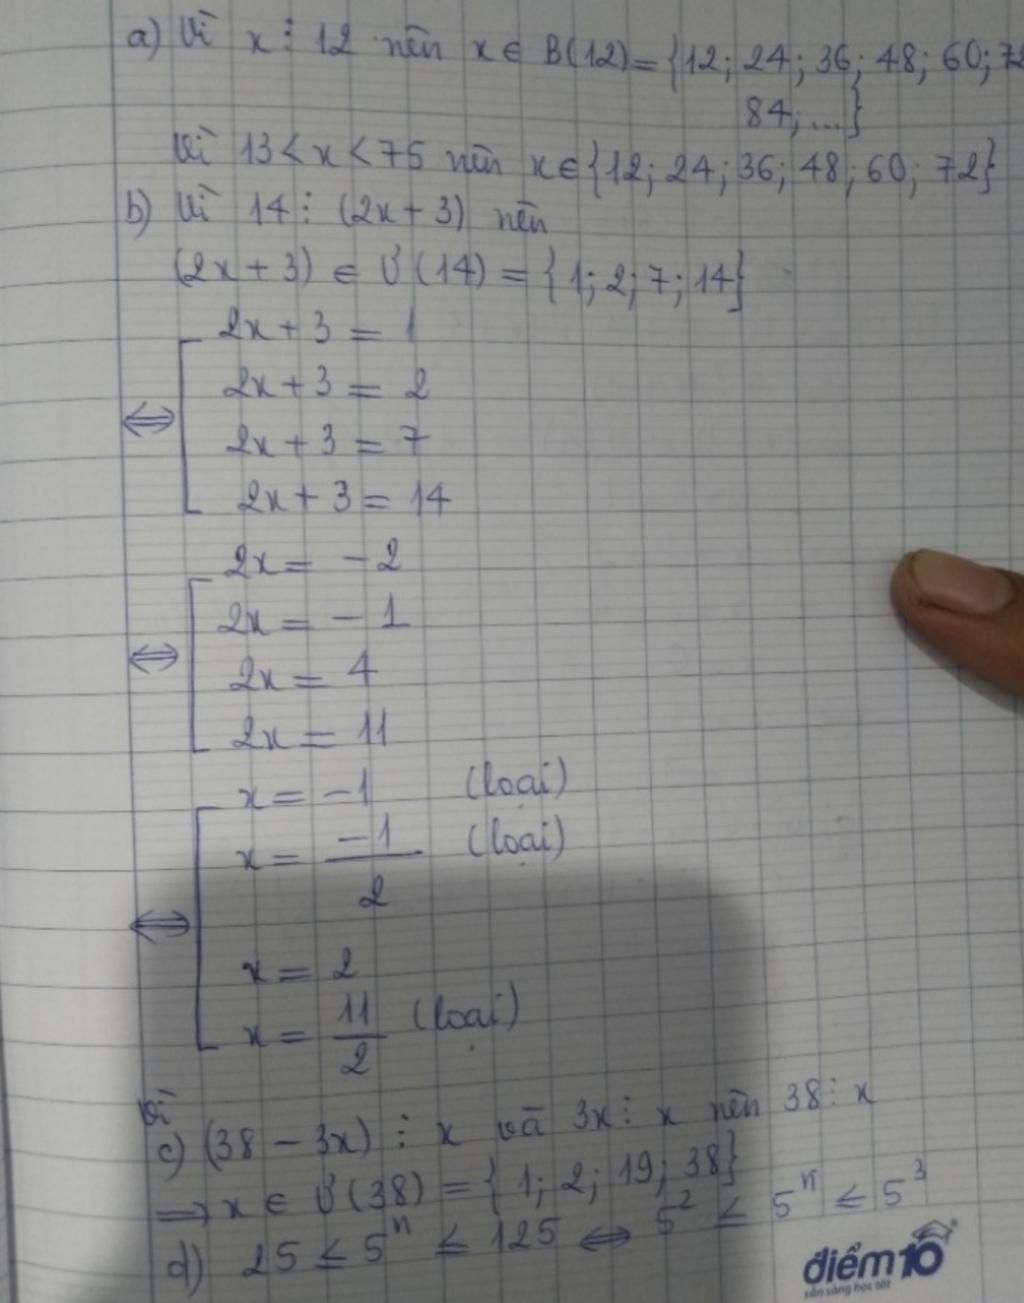 a) Vì x ⋮ 12 nên x ∈ B(12) = {12; 24; 36; 48; 60; 72
84; ...}
Vì 13 < x < 75 nên x ∈ {12; 24; 36; 48; 60; 72}
b) Vì 14 ⋮ (2x + 3) nên
(2x + 3) ∈ Ư(14) = {1; 2; 7; 14}
2x + 3 = 1
2x + 3 = 2
⇔ 2x + 3 = 7
2x + 3 = 14
2x = -2
2x = -1
⇔ 2x = 4
2x = 11
x = -1 (loại)
x = -1/2 (loại)
⇔ x = 2
x = 11/2 (loại)
Vì
c) (38 - 3x) ⋮ x và 3x ⋮ x nên 38 ⋮ x
⇒ x ∈ Ư(38) = {1; 2; 19; 38}
d) 25 ≤ 5^n ≤ 125 ⇔ 5^2 ≤ 5^n ≤ 5^3
điểm10
sẵn sàng học tốt